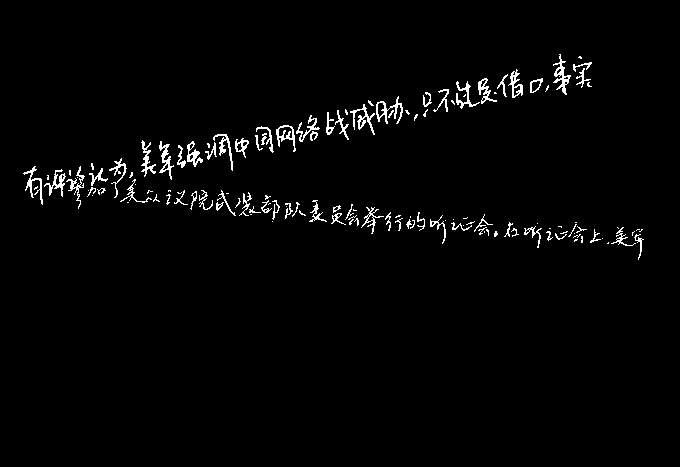 有评论认为,美军强调中国网络战威胁,只不过是借口,事实
参加了美众议院武装部队委员会举行的听证会。在听证会上,美军